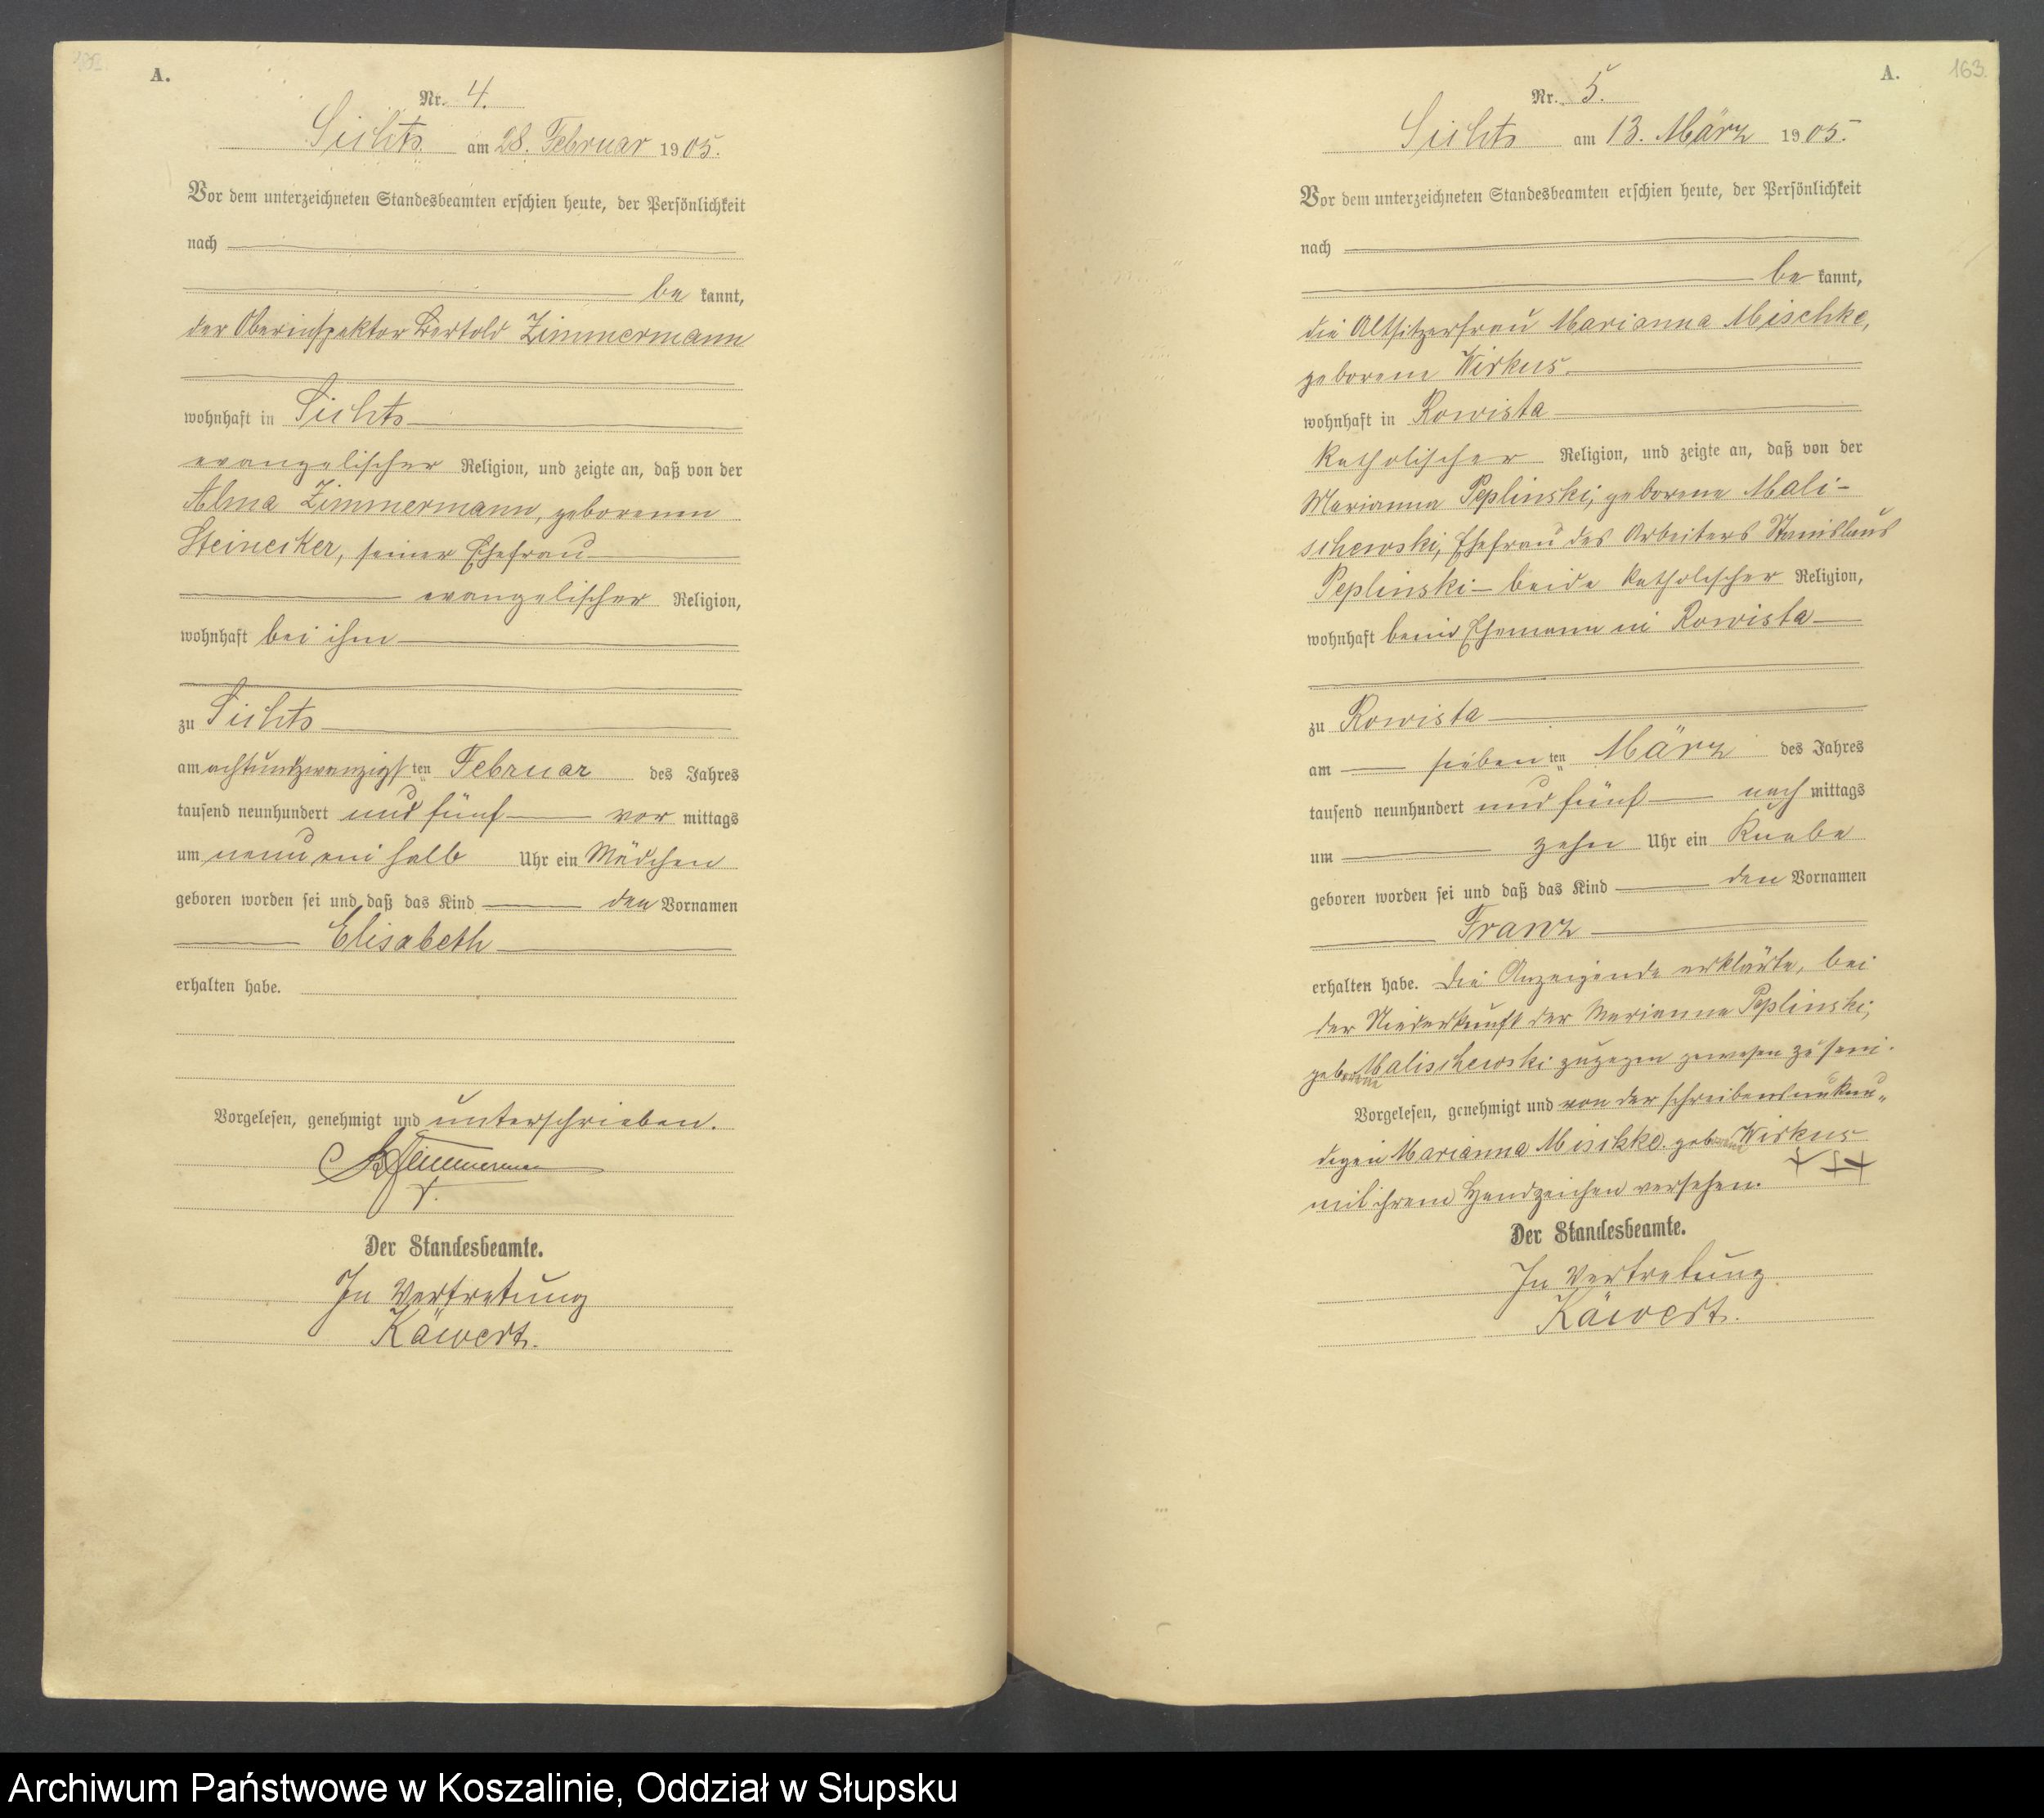 A.
Nr. 4.
Sichts am 28. Februar 1905.
Vor dem unterzeichneten Standesbeamten erschien heute, der Persönlichkeit
nach
be kannt,
der Oberinspektor Bertold Zimmermann
wohnhaft in Sichts
evangelischer Religion, und zeigte an, daß von der
Alma Zimmermann, geborenen
Steinecker, seiner Ehefrau
evangelischer Religion,
wohnhaft bei ihm
zu Sichts
am achtundzwanzigsten Februar des Jahres
tausend neunhundert und fünf vor mittags
um neun ein halb Uhr ein Mädchen
geboren worden sei und daß das Kind den Vornamen
Elisabeth
erhalten habe.
Vorgelesen, genehmigt und unterschrieben.
B Zimmermann
Der Standesbeamte.
In Vertretung
Käwert.
A. 163.
Nr. 5.
Sichts am 13. März 1905.
Vor dem unterzeichneten Standesbeamten erschien heute, der Persönlichkeit
nach
be kannt,
die Altsitzerfrau Marianna Mischke,
geborene Wirkus.
wohnhaft in Kowista
katholischer Religion, und zeigte an, daß von der
Marianna Peplinski, geborene Mali-
schewski, Ehefrau des Arbeiters Stanislaus
Peplinski – beide katholischer Religion,
wohnhaft beim Ehemann in Kowista
zu Kowista
am siebenten März des Jahres
tausend neunhundert und fünf nach mittags
um zehn Uhr ein Knabe
geboren worden sei und daß das Kind den Vornamen
Franz
erhalten habe. Die Anzeigende erklärte, bei
der Niederkunft der Marianna Peplinski,
geborene Malischewski zugegen gewesen zu sein.
Vorgelesen, genehmigt und von der schreibensunkun-
digen Marianna Mischke geborene Wirkus
mit ihrem Handzeichen versehen. +++
Der Standesbeamte.
In Vertretung
Käwert.
Archiwum Państwowe w Koszalinie, Oddział w Słupsku